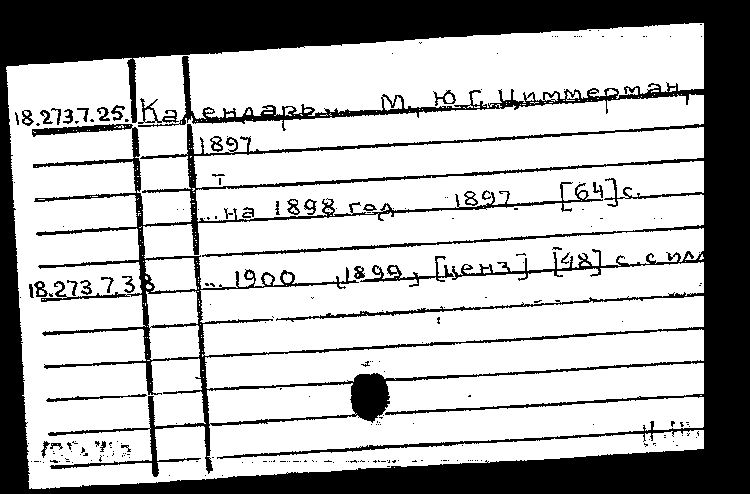 18.273.7.25. Календарь... М., Ю Г. Циммерман,
1897.
т
...на 1898 год 1897. [64] с.
18.273.7.38 ... 1900 1899, [ценз] [48] с. с илл